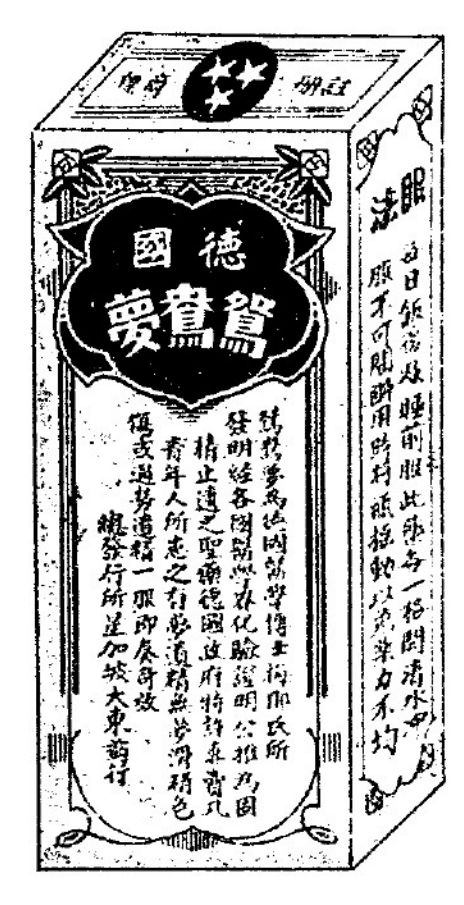 註冊商標
德國
鴛鴦夢
鴛鴦夢為德國醫學博士梅那氏所
發明經各國醫學界化驗證明公推為固
精止遺之聖藥德國政府特許專賣凡
青年人所患之有夢遺精無夢滑精色
過勞遺精一服即奏奇效
總發行所星加坡大東藥行
服法
每日飯後及睡前服此藥每一格開清水
服不可間斷用時將瓶搖動以免藥力不均